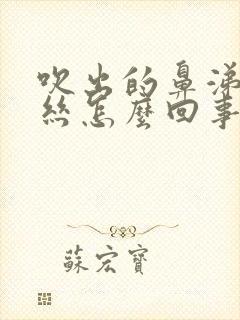 吹出的鼻涕
絲怎麼回事
蘇宏寶